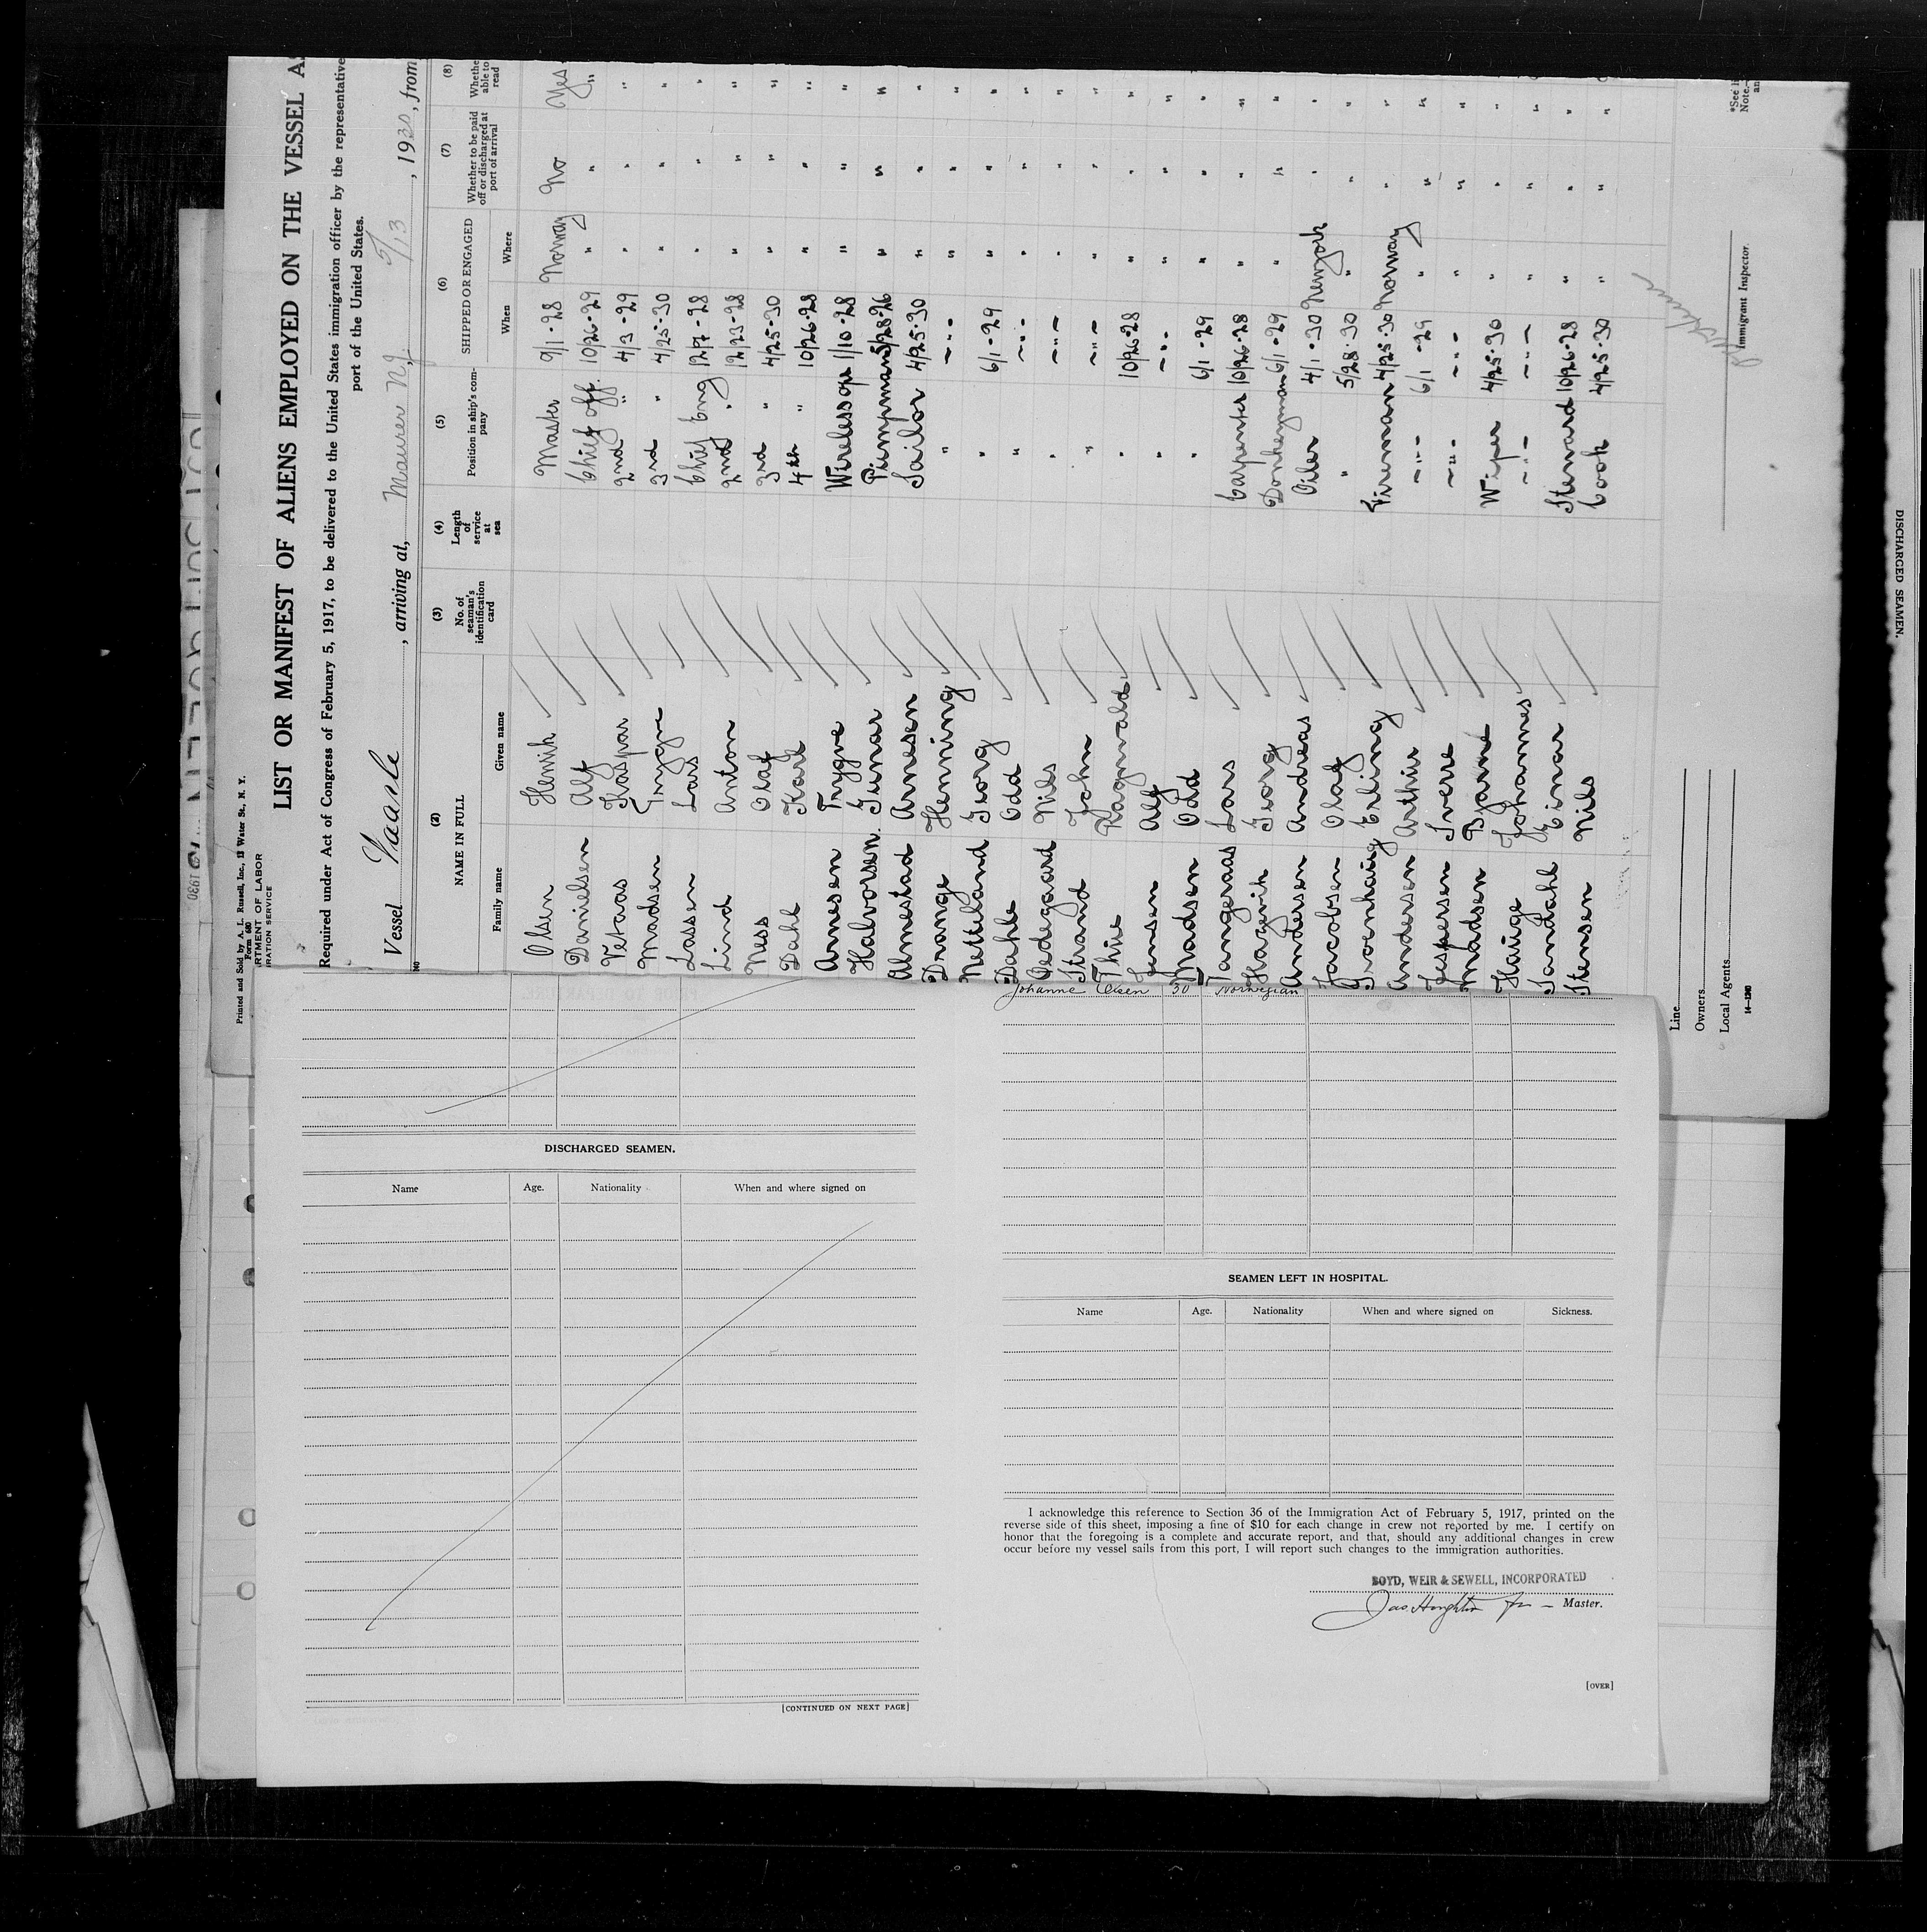 Printed and Sold by A. L. Russell, Inc., 13 Water St., N. Y.
Form 680
RTMENT OF LABOR
RATION SERVICE
LIST OR MANIFEST OF ALIENS EMPLOYED ON THE VESSEL A
Required under Act of Congress of February 5, 1917, to be delivered to the United States immigration officer by the representative
port of the United States.
Vessel Vaarli, arriving at, Maurer N.J. 5/13, 1930, from
(2) (3) (4) (5) (6) (7) (8)
NAME IN FULL
No. of seaman's identification card
Length of service at sea
Position in ship's company
SHIPPED OR ENGAGED
Whether to be paid off or discharged at port of arrival
Whethe able to read
Family name Given name When Where
Olsen Henrik Master 9/1-28 Norway No Yes
Danielsen Alf Chief off. 10/26-29 " " "
Vetaas Kaspar 2nd " 4/3-29 " " "
Madsen Trygve 3rd " 4/25-30 " " "
Lassen Lars Chief Eng 12/7-28 " " "
Lind Anton 2nd " 12/23-28 " " "
Ness Olaf 3rd " 4/25-30 " " "
Dahl Karl 4th " 10/26-28 " " "
Arnesen Trygve Wireless ope 1/10-28 " " "
Halvorsen Gunar Pumpman 5/28-26 " " "
Almestad Arnesen Sailor 4/25-30 " " "
Drange Henning " -"- " " "
Netteland Georg " 6/1-29 " " "
Dahle Odd " -"- " " "
Oedegaard Nils " -"- " " "
Strand John " -"- " " "
Thue Ragnvald " 10/26-28 " " "
Jensen Alf " -"- " " "
Madsen Odd " 6/1-29 " " "
Tangeraas Lars Carpenter 10/26-28 " " "
Hagevik Georg Donkeyman 6/1-29 " " "
Andersen Andreas Oiler 4/1-30 Newyork " "
Jacobsen Olaf " 5/28-30 " " "
Erling Fireman 4/25-30 Norway " "
Andersen Arthur -"- 6/1-29 " " "
Jespersen Sverre -"- -"- " " "
Bjarne Wiper 4/25-30 " " "
Hauge Johannes -"- -"- " " "
Sandahl Einar Steward 10/26-28 " " "
Stensen Nils Cook 4/25-30 " " "
Line
Owners
Local Agents
14-1240
Immigrant Inspector.
*See i
Note.—
an
Johanne Olsen 30 Norwegian
DISCHARGED SEAMEN.
Name Age. Nationality When and where signed on
[CONTINUED ON NEXT PAGE]
SEAMEN LEFT IN HOSPITAL.
Name Age. Nationality When and where signed on Sickness.
I acknowledge this reference to Section 36 of the Immigration Act of February 5, 1917, printed on the
reverse side of this sheet, imposing a fine of $10 for each change in crew not reported by me. I certify on
honor that the foregoing is a complete and accurate report, and that, should any additional changes in crew
occur before my vessel sails from this port, I will report such changes to the immigration authorities.
BOYD, WEIR & SEWELL, INCORPORATED
Master.
[OVER]
DISCHARGED SEAMEN.